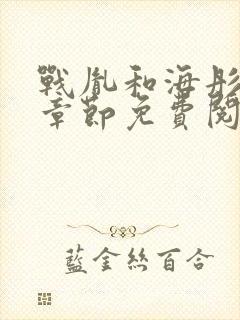 戰胤和海彤
章節免費閱
藍金絲百合